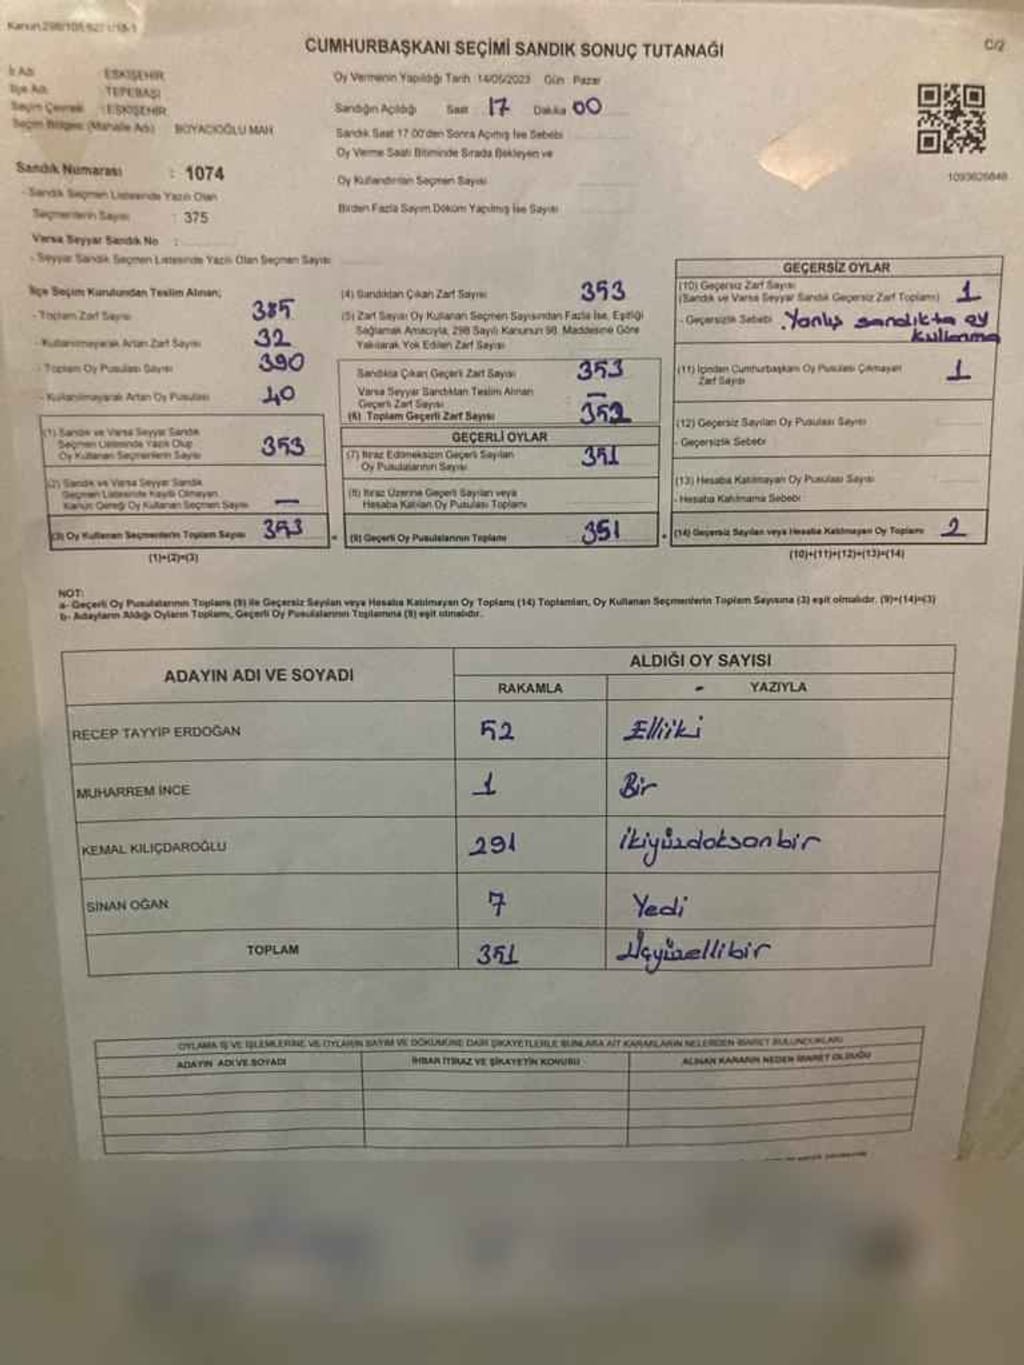 CUMHURBAŞKANI SEÇİMİ SANDIK SONUÇ TUTANAĞI
C/2
İl Adı : ESKİŞEHİR
İlçe Adı : TEPEBAŞI
Seçim Çevresi : ESKİŞEHİR
Seçim Bölgesi (Mahalle Adı) : BOYACIOĞLU MAH
Oy Vermenin Yapıldığı Tarih 14/05/2023 Gün Pazar
Sandığın Açıldığı Saat 17 Dakika 00
Sandık Saat 17.00'den Sonra Açılmış İse Sebebi
Oy Verme Saati Bitiminde Sırada Bekleyen ve
Oy Kullandırılan Seçmen Sayısı
Birden Fazla Sayım Döküm Yapılmış İse Sayısı
1093626848
Sandık Numarası : 1074
- Sandık Seçmen Listesinde Yazılı Olan
Seçmenlerin Sayısı : 375
Varsa Seyyar Sandık No :
- Seyyar Sandık Seçmen Listesinde Yazılı Olan Seçmen Sayısı
İlçe Seçim Kurulundan Teslim Alınan;
- Toplam Zarf Sayısı 385
- Kullanılmayarak Artan Zarf Sayısı 32
- Toplam Oy Pusulası Sayısı 390
- Kullanılmayarak Artan Oy Pusulası 40
(1) Sandık ve Varsa Seyyar Sandık
Seçmen Listesinde Yazılı Olup
Oy Kullanan Seçmenlerin Sayısı 353
(2) Sandık ve Varsa Seyyar Sandık
Seçmen Listesinde Kayıtlı Olmayan
Kanun Gereği Oy Kullanan Seçmen Sayısı —
(3) Oy Kullanan Seçmenlerin Toplam Sayısı 353
(1)+(2)=(3)
(4) Sandıktan Çıkan Zarf Sayısı 353
(5) Zarf Sayısı Oy Kullanan Seçmen Sayısından Fazla İse, Eşitliği
Sağlamak Amacıyla, 298 Sayılı Kanunun 98. Maddesine Göre
Yakılarak Yok Edilen Zarf Sayısı
Sandıkta Çıkan Geçerli Zarf Sayısı 353
Varsa Seyyar Sandıktan Teslim Alınan
Geçerli Zarf Sayısı —
(6) Toplam Geçerli Zarf Sayısı 352
GEÇERLİ OYLAR
(7) İtiraz Edilmeksizin Geçerli Sayılan
Oy Pusulalarının Sayısı 351
(8) İtiraz Üzerine Geçerli Sayılan veya
Hesaba Katılan Oy Pusulası Toplamı
(9) Geçerli Oy Pusulalarının Toplamı 351
GEÇERSİZ OYLAR
(10) Geçersiz Zarf Sayısı
(Sandık ve Varsa Seyyar Sandık Geçersiz Zarf Toplamı) 1
- Geçersizlik Sebebi Yanlış sandıkta oy
kullanma
(11) İçinden Cumhurbaşkanı Oy Pusulası Çıkmayan
Zarf Sayısı 1
(12) Geçersiz Sayılan Oy Pusulası Sayısı
- Geçersizlik Sebebi
(13) Hesaba Katılmayan Oy Pusulası Sayısı
- Hesaba Katılmama Sebebi
(14) Geçersiz Sayılan veya Hesaba Katılmayan Oy Toplamı 2
(10)+(11)+(12)+(13)=(14)
NOT:
a- Geçerli Oy Pusulalarının Toplamı (9) ile Geçersiz Sayılan veya Hesaba Katılmayan Oy Toplamı (14) Toplamları, Oy Kullanan Seçmenlerin Toplam Sayısına (3) eşit olmalıdır. (9)+(14)=(3)
b- Adayların Aldığı Oyların Toplamı, Geçerli Oy Pusulalarının Toplamına (9) eşit olmalıdır.
ADAYIN ADI VE SOYADI
ALDIĞI OY SAYISI
RAKAMLA - YAZIYLA
RECEP TAYYİP ERDOĞAN 52 Elliiki
MUHARREM İNCE 1 Bir
KEMAL KILIÇDAROĞLU 291 ikiyüzdoksanbir
SİNAN OĞAN 7 Yedi
TOPLAM 351 Üçyüzellibir
OYLAMA İŞ VE İŞLEMLERİNE VE OYLARIN SAYIM VE DÖKÜMÜNE DAİR ŞİKAYETLERLE BUNLARA AİT KARARLARIN NELERDEN İBARET BULUNDUKLARI
ADAYIN ADI VE SOYADI
İHBAR İTİRAZ VE ŞİKAYETİN KONUSU
ALINAN KARARIN NEDEN İBARET OLDUĞU